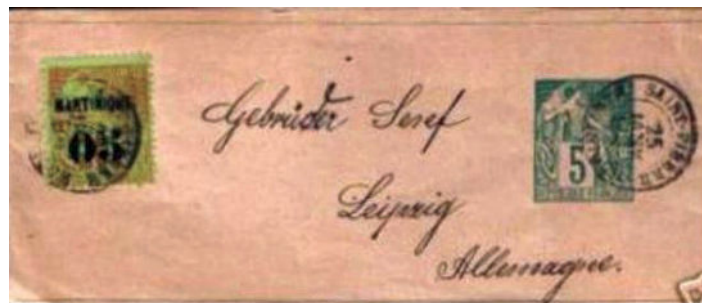 MARTINIQUE
05
Gebrüder Senf
Leipzig
Allemagne.
5
SAINT-PIERRE
25